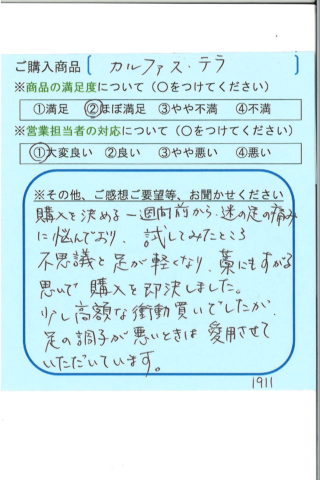 ご購入商品〔 カルファス・テラ 〕
※商品の満足度について（○をつけてください）
①満足 ②ほぼ満足 ③やや不満 ④不満
※営業担当者の対応について（○をつけてください）
①大変良い ②良い ③やや悪い ④悪い
※その他、ご感想ご要望等、お聞かせください
購入を決める一週間前から、謎の足の痛み
に悩んでおり、試してみたところ
不思議と足が軽くなり、藁にもすがる
思いで購入を即決しました。
少し高額な衝動買いでしたが、
足の調子が悪いときは愛用させて
いただいています。
1911